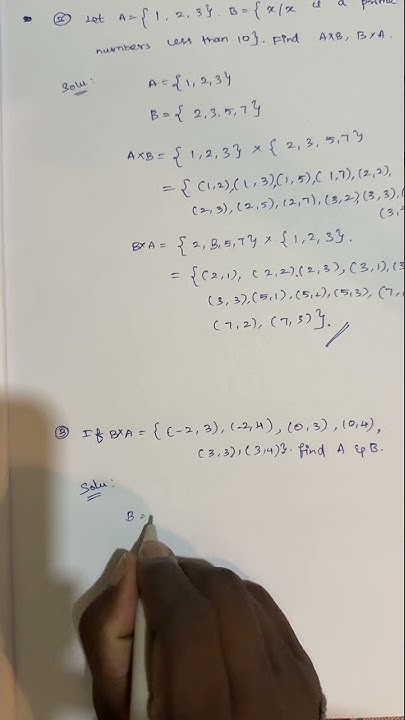 ② Let A = { 1, 2, 3 }. B = { x/x is a prime
numbers less than 10 }. Find AXB, BXA.
Solu:
A = { 1, 2, 3 }
B = { 2, 3, 5, 7 }
AXB = { 1, 2, 3 } × { 2, 3, 5, 7 }
= { (1, 2), (1, 3), (1, 5), (1, 7), (2, 2),
(2, 3), (2, 5), (2, 7), (3, 2), (3, 3), (
(3,
BXA = { 2, 3, 5, 7 } × { 1, 2, 3 }.
= { (2, 1), (2, 2), (2, 3), (3, 1), (3
(3, 3), (5, 1), (5, 2), (5, 3), (7,
(7, 2), (7, 3) }.
③ If BXA = { (-2, 3), (-2, 4), (0, 3), (0, 4),
(3, 3), (3, 4) }. find A & B.
Solu:
B =